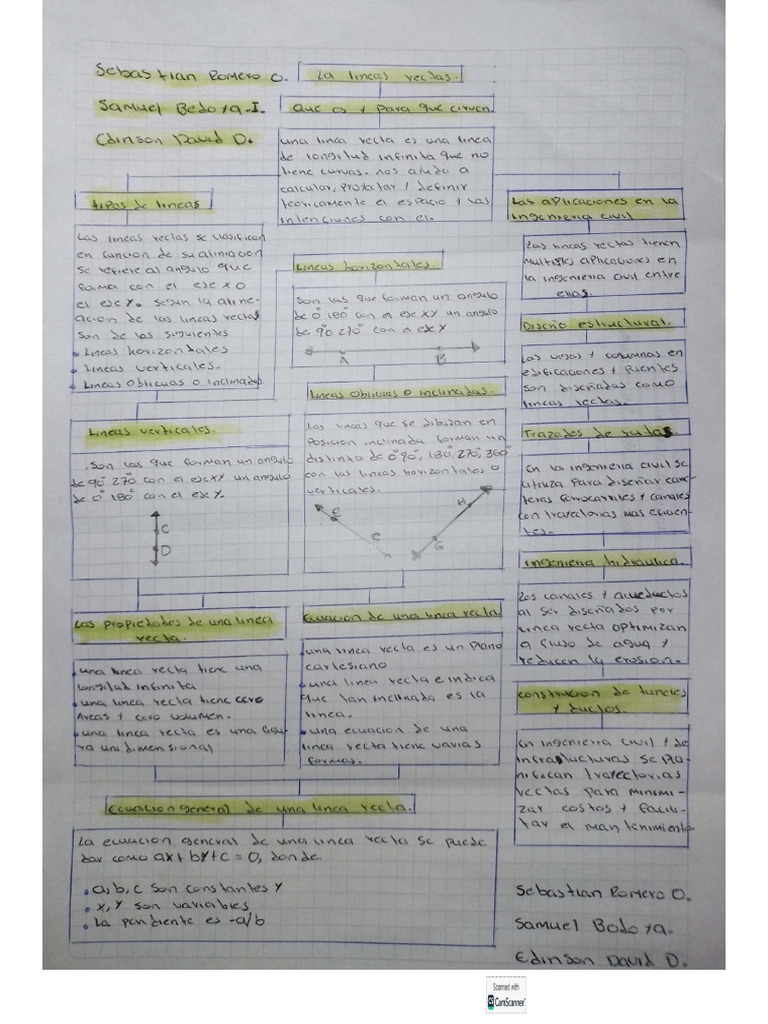 Sebastian Romero O.
La lineas rectas.
Samuel Bedoya.I.
Que es y para que cirven
Edinson David D.
una linea recta es una linea
de longitud infinita que no
tiene curvas. nos ayuda a
calcular, proyectar / definir
teoricamente el espacio y las
intenciones con el.
tipos de lineas
Las lineas rectas se clasifican
en funcion de su aliniacion
se refiere al angulo que
forma con el eje x o
el eje y. segun la aline-
acion de las lineas rectas
son de las siguientes
• Lineas horizontales
• Lineas verticales.
• Lineas oblicuas o inclinadas.
Lineas horizontales.
Son las que forman un angulo
de 0° 180° con a eje xy un angulo
de 90 270° con a eje y
A B
Lineas verticales.
Son las que forman un angulo
de 90° 270° con el eje xy un angulo
de 0° 180° con el eje y.
C
D
Lineas oblicuas o inclinadas.
Las lineas que se dibujan en
Posicion inclinada forman un
distinto de 0° 90°, 180°, 270°, 360°
con las lineas horizontales o
verticales.
E C H G
Las propiedades de una linea
recta.
una linea recta tiene una
longitud infinita
• una linea recta tiene cero
Areas y cero volumen.
• una linea recta es una figu-
ra unidimensional
Ecuacion de una linea recta
una linea recta es un plano
carlesiano
• una linea recta e indica
que tan inclinada es la
linea.
• una ecuacion de una
linea recta tiene varias
formas.
Ecuacion general de una linea recta.
La ecuacion general de una linea recta se puede
dar como ax+by+c=0, donde.
• a,b,c son constantes y
• x,y son variables
• La pendiente es -a/b
Las aplicaciones en la
ingenieria civil
Las lineas rectas tienen
multiples aplicaciones en
la ingenieria civil entre
ellas.
Diseño estructural.
Las vigas y columnas en
edificaciones y puentes
son diseñadas como
lineas rectas.
Trazados de rutas.
En la ingenieria civil se
utiliza para diseñar carre-
teras ferrocarriles y canales
con trayectorias mas eficien-
tes.
ingenieria hidraulica.
Los canales y acueductos
al ser diseñados por
linea recta optimizan
a flujo de agua y
reducen la erosion.
construcion de tuneles
y ductos.
En ingenieria civil y de
infraestructuras se pla-
nifican trayectorias
rectas para minimi-
zar costos y facili-
tar el mantenimiento
Sebastian Romero O.
Samuel Bedoya.
Edinson David D.
Scanned with
CS CamScanner